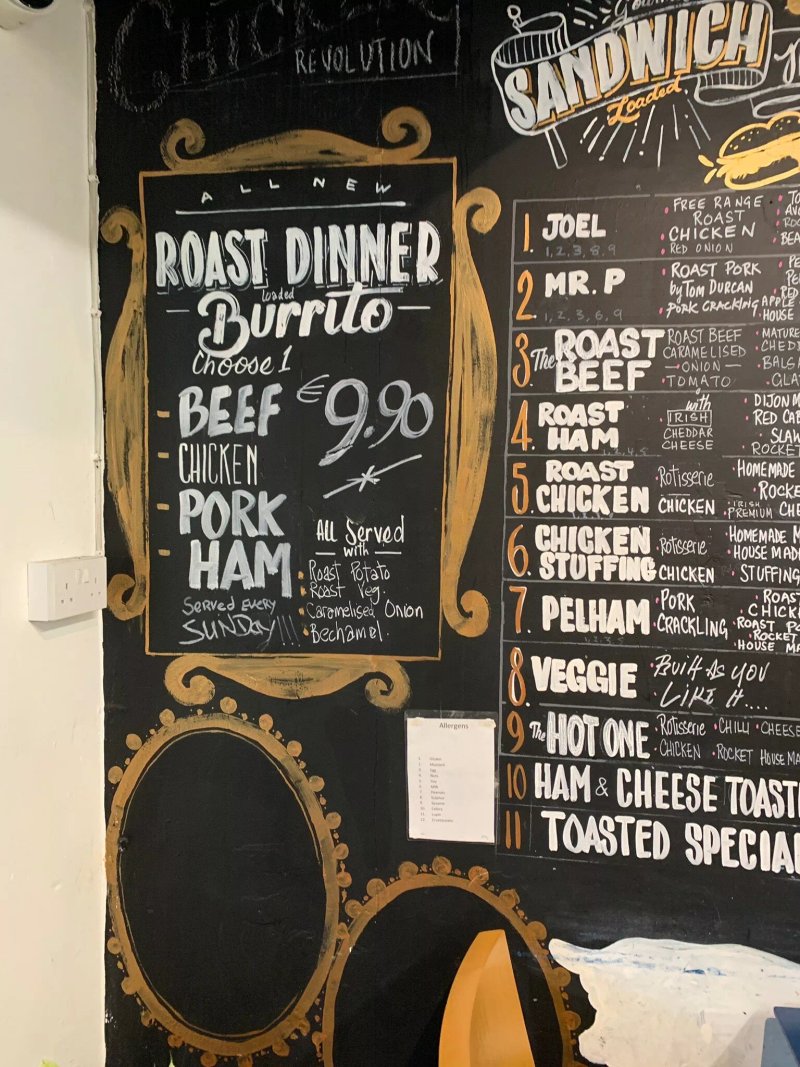 CHICKEN
REVOLUTION
ALL NEW
ROAST DINNER
loaded
Burrito
Choose 1
BEEF
CHICKEN
PORK
HAM
€9.90
All Served
with
Roast Potato
Roast Veg.
Caramelised Onion
Bechamel
Served every
SUNDAY!!!
SANDWICH
Loaded
1. JOEL
1, 2, 3, 8, 9
FREE RANGE
ROAST
CHICKEN
RED ONION
2. MR. P
1, 2, 3, 6, 9
ROAST PORK
by TOM DURCAN
PORK CRACKLING
APPLE
HOUSE
3. The ROAST
BEEF
ROAST BEEF
CARAMELISED
ONION
TOMATO
MATURE
CHEDD
BALSA
GLA
4. ROAST
HAM
with
IRISH
CHEDDAR
CHEESE
DIJON M
RED CAB
SLAW
ROCKET
5. ROAST
CHICKEN
Rotisserie
CHICKEN
HOMEMADE
ROCKE
IRISH
PREMIUM CHE
6. CHICKEN
STUFFING
Rotisserie
CHICKEN
HOMEMADE M
HOUSE MAD
STUFFING
7. PELHAM
PORK
CRACKLING
ROAST
CHICK
ROAST PO
ROCKET
HOUSE MA
8. VEGGIE
Built AS YOU
LIKE It....
9. The HOT ONE
Rotisserie • CHILLI • CHEESE
CHICKEN • ROCKET HOUSE MA
10 HAM & CHEESE TOAST
11 TOASTED SPECIAL
Allergens